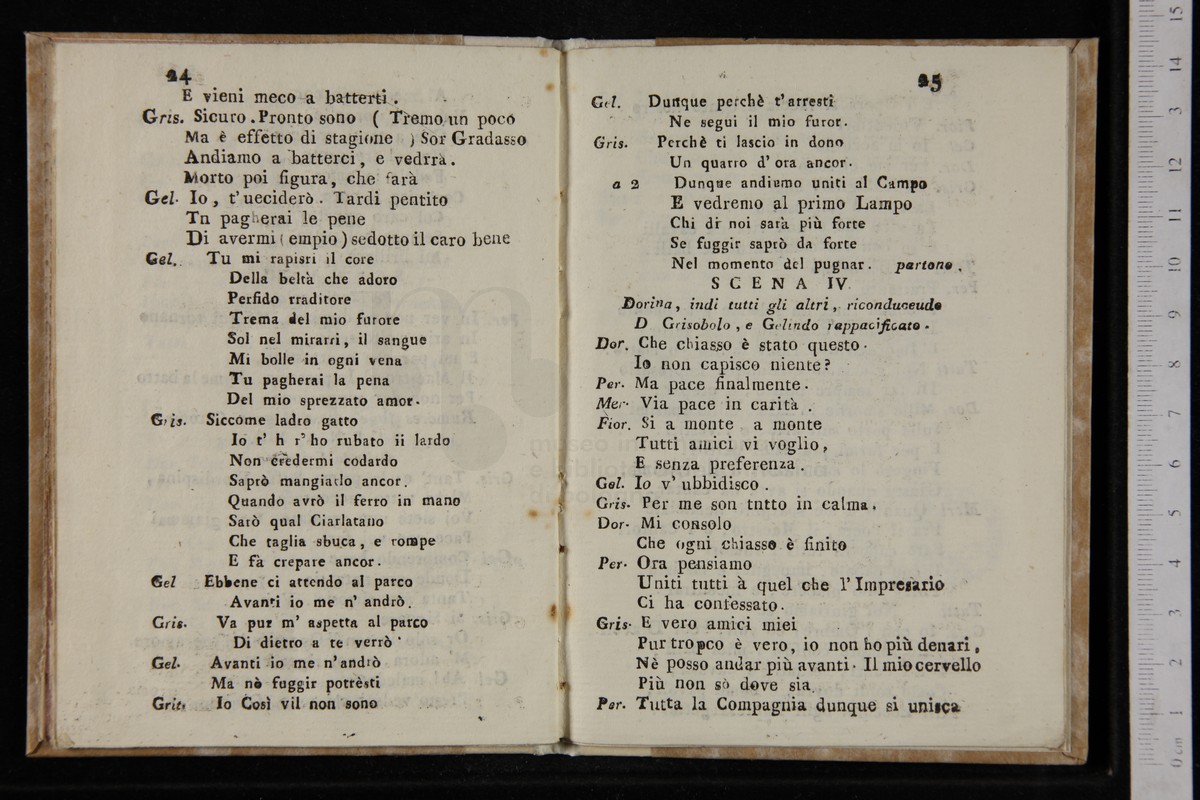 24
E vieni meco a batterti.
Gris. Sicuro. Pronto sono ( Tremo un poco
Ma è effetto di stagione ) Sor Gradasso
Andiamo a batterci, e vedrrà.
Morto poi figura, che farà
Gel. Io, t' ueciderò. Tardi pentito
Tn pagherai le pene
Di avermi ( empio ) sedotto il caro bene
Gel. Tu mi rapisti il core
Della beltà che adoro
Perfido rraditore
Trema del mio furore
Sol nel mirarti, il sangue
Mi bolle in ogni vena
Tu pagherai la pena
Del mio sprezzato amor.
Gris. Siccome ladro gatto
Io t' h r' ho rubato ii lardo
Non credermi codardo
Saprò mangiarlo ancor.
Quando avrò il ferro in mano
Sarò qual Ciarlatano
Che taglia sbuca, e rompe
E fà crepare ancor.
Gel Ebbene ci attendo al parco
Avanti io me n' andrò.
Gris. Va pur m' aspetta al parco
Di dietro a te verrò
Gel. Avanti io me n' andrò
Ma nè fuggir potrèsti
Gris. Io Così vil non sono
25
Gel. Dunque perchè t' arresti
Ne segui il mio furor.
Gris. Perchè ti lascio in dono
Un quarro d' ora ancor.
a 2 Dunque andiamo uniti al Campo
E vedremo al primo Lampo
Chi di noi sarà più forte
Se fuggir saprò da forte
Nel momento del pugnar. partono.
SCENA IV
Dorina, indi tutti gli altri, riconduceudo
D Grisobolo, e Gelindo rappacificato.
Dor. Che chiasso è stato questo.
Io non capisco niente?
Per. Ma pace finalmente.
Mer. Via pace in carità.
Fior. Si a monte a monte
Tutti amici vi voglio,
E senza preferenza.
Gel. Io v' ubbidisco.
Gris. Per me son tntto in calma.
Dor. Mi consolo
Che ogni chiasso è finito
Per. Ora pensiamo
Uniti tutti à quel che l' Impresario
Ci ha confessato.
Gris. E vero amici miei
Pur tropco è vero, io non ho più denari,
Nè posso andar più avanti. Il mio cervello
Più non sò dove sia.
Per. Tutta la Compagnia dunque si unisca